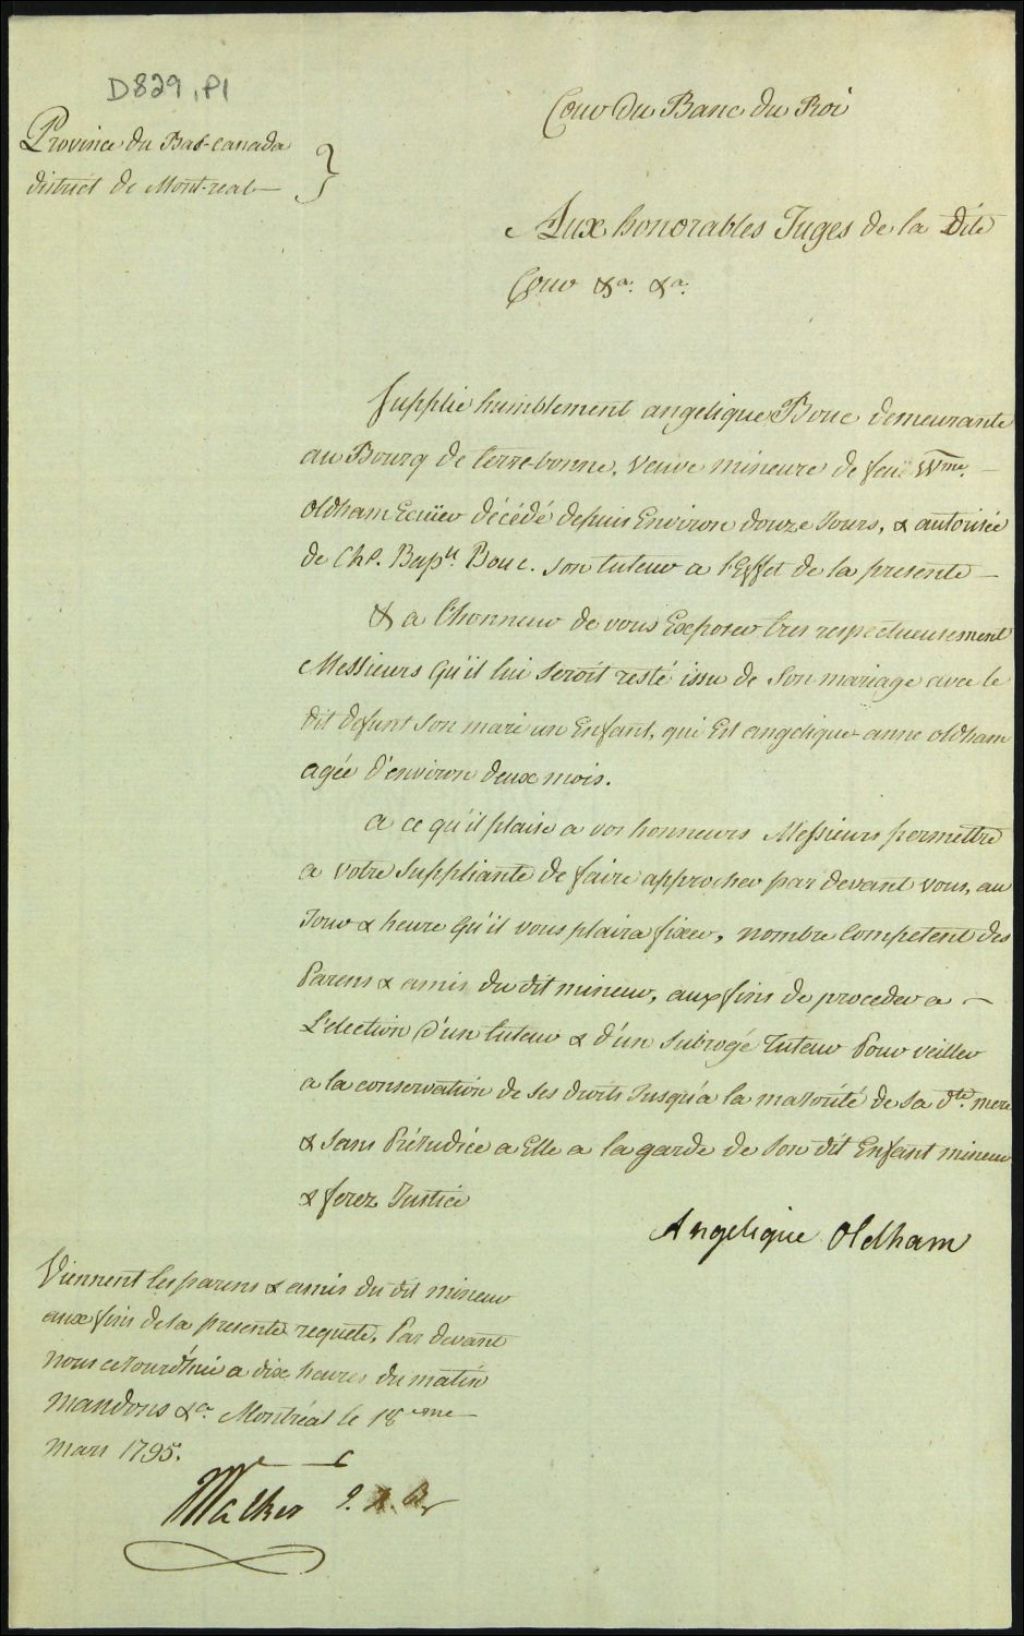 D829, P1
Cour Du Banc du Roi
Province du Bas-canada
district de Mont-real
Aux honorables Juges de la Dite
Cour &a. &a.
Supplie humblement angelique Bouc demeurante
au Bourg de terrebonne, Veuve mineure de feu Wme.
Oldham Ecuïer décédé depuis Environ douze Jours, & autorisée
de Chs. Bapte. Bouc. son tuteur a l'Effet de la presente
& a l'honneur de vous Exposer tres respectueusement
Messieurs Qu'il lui Seroit resté issu de Son mariage avec le
dit defunt Son mari un Enfant, qui Est angelique anne oldham
agée d'environ deux mois.
a ce qu'il plaise a vos honneurs Messieurs permettre
a votre Suppliante de faire approcher par devant vous, au
Jour & heure Qu'il vous plaira fixer, nombre Competent des
Parens & amis du dit mineur, aux fins de proceder a
L'election d'un tuteur & d'un Subrogé Tuteur Pour veiller
a la conservation de ses droits Jusqu'a la maJorité de Sa dte. mere
& Sans PréJudice a Elle a la garde de Son dit Enfant mineur
& ferez Justice
Angelique Oldham
Viennent les parens & amis du dit mineur
aux fins de la presente requete, Par devant
nous ceJourd'hui a dix heures du matin
mandons &a. Montréal le 18eme
mars 1795.
Walker J. K. B.